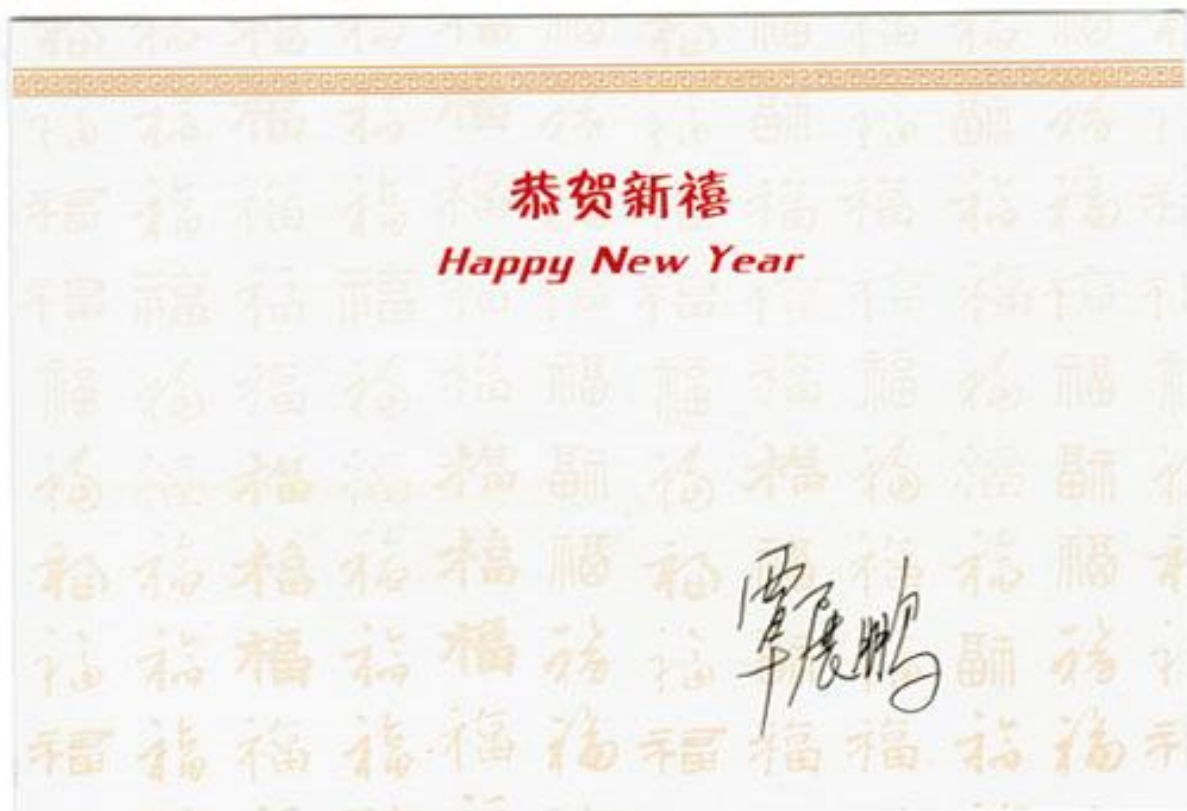 恭贺新禧
Happy New Year
覃展鹏